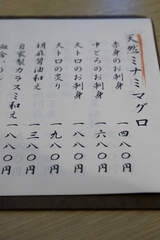 天然ミナミマグロ
赤身のお刺身 一四八〇円
中とろのお刺身 一六八〇円
大トロのお刺身 一八八〇円
大トロの炙り 一九八〇円
胡麻醤油和え 一三八〇円
自家製カラスミ和え 一八八〇円